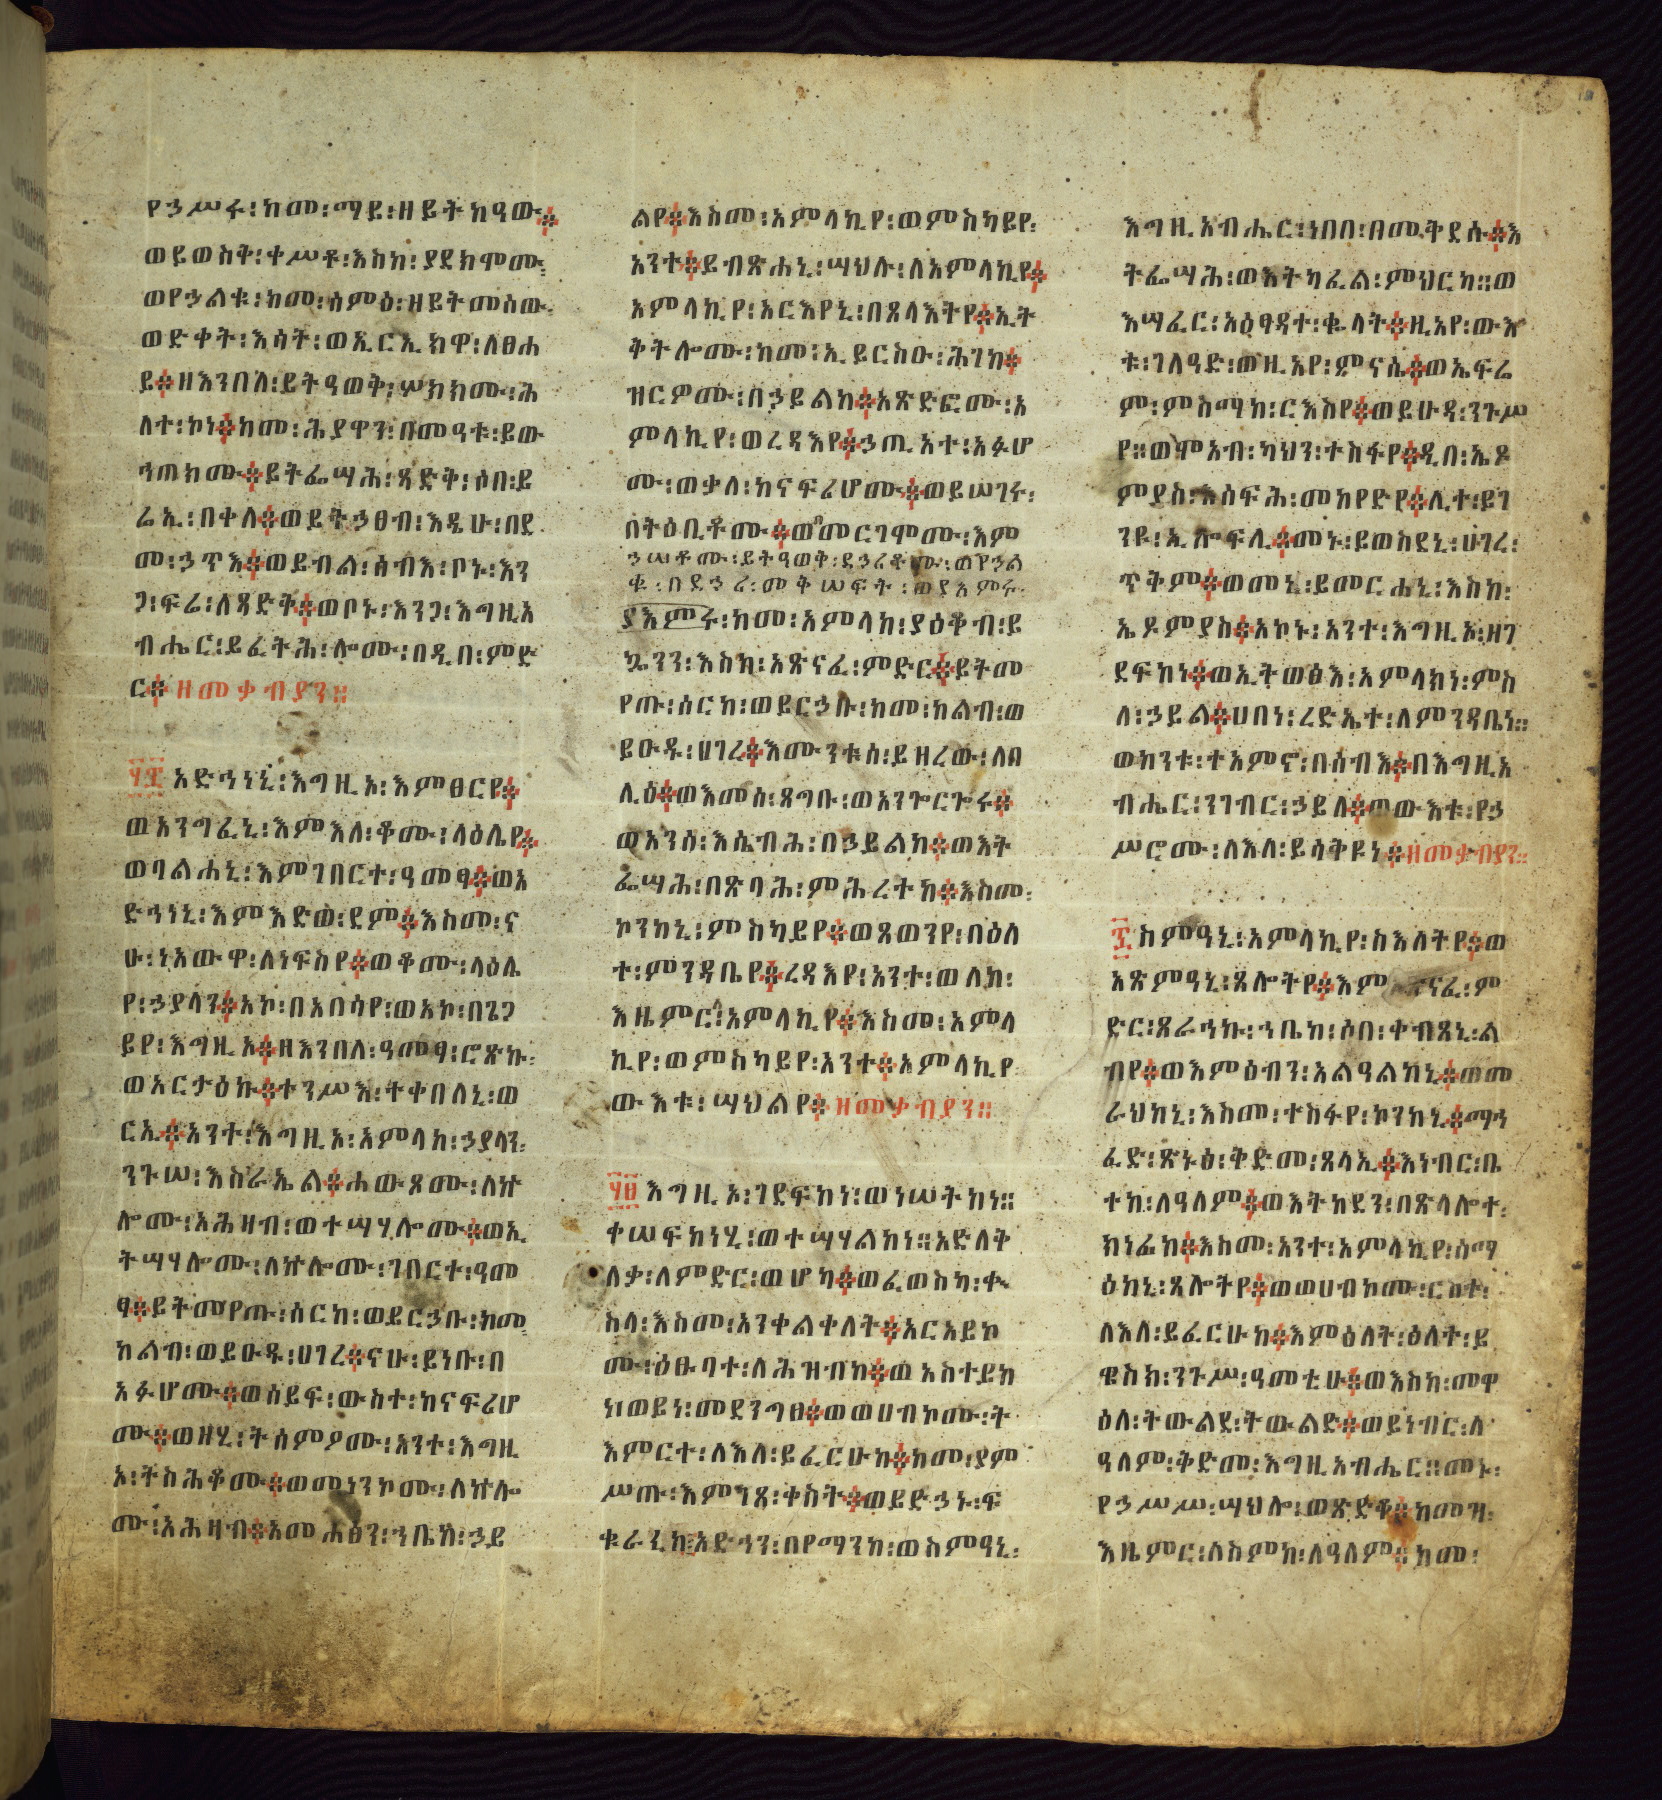 የኃሥሩ፡ከመ፡ማይ፡ዘይትከዓው፨
ወይወስቅ፡ቀሥቶ፡እስከ፡ያደክሞሙ፡
ወየኃልቁ፡ከመ፡ሰምዕ፡ዘይትመሰው፡
ወድቀት፡እሳት፡ወኢርኢክዋ፡ለፀሐ
ይ፨ዘእንበለ፡ይትዓወቅ፡ሦክክሙ፡ሕ
ለተ፡ኮነ፨ከመ፡ሕያዋን፡በመዓቱ፡ይው
ኅጠክሙ፨ይትፌሣሕ፡ጻድቅ፡ሶበ፡ይ
ሬኢ፡በቀለ፨ወይትኃፀብ፡እዴሁ፡በደ
መ፡ኃጥእ፨ወይብል፡ሰብእ፡ቦኑ፡እን
ጋ፡ፍሬ፡ለጻድቅ፨ወቦኑ፡እንጋ፡እግዚአ
ብሔር፡ይፈትሕ፡ሎሙ፡በዲበ፡ምድ
ር፨ዘመቃብያን።
፶፰ አድኅነኒ፡እግዚኦ፡እምፀርየ፨
ወአንግፈኒ፡እምእለ፡ቆሙ፡ላዕሌየ፨
ወባልሐኒ፡እምገበርተ፡ዓመፃ፨ወአ
ድኅነኒ፡እምእድወ፡ደም፨እስመ፡ና
ሁ፡ነአውዋ፡ለነፍስየ፨ወቆሙ፡ላዕሌ
የ፡ኃያላን፨አኮ፡በአበሳየ፡ወአኮ፡በጌጋ
ይየ፡እግዚኦ፨ዘእንበለ፡ዓመፃ፡ሮጽኩ፡
ወአርታዕኩ፨ተንሥእ፡ተቀበለኒ፡ወ
ርኢ፨አንተ፡እግዚኦ፡አምላከ፡ኃያላን፡
ንጉሠ፡እስራኤል፨ሐውጾሙ፡ለኵ
ሎሙ፡አሕዛብ፡ወተሣሃሎሙ፨ወኢ
ትሣሃሎሙ፡ለኵሎሙ፡ገበርተ፡ዓመ
ፃ፨ይትመየጡ፡ሰርከ፡ወይርኃቡ፡ከመ፡
ከልብ፡ወይዑዱ፡ሀገረ፨ናሁ፡ይነቡ፡በ
አፉሆሙ፨ወሰይፍ፡ውስተ፡ከናፍሪሆ
ሙ፨ወዘሂ፡ትሰምዖሙ፡አንተ፡እግዚ
ኦ፡ትስሕቆሙ፨ወመነንኮሙ፡ለኵሎ
ሙ፡አሕዛብ፨አመሐፅን፡ኀቤከ፡ኃይ
ልየ፨እስመ፡አምላኪየ፡ወምስካይየ፡
አንተ፨ይብጽሐኒ፡ሣህሉ፡ለአምላኪየ፨
አምላኪየ፡አርእየኒ፡በጸላእትየ፨ኢት
ቅትሎሙ፡ከመ፡ኢይርስዑ፡ሕገከ፨
ዝርዎሙ፡በኃይልከ፨አጽድፎሙ፡አ
ምላኪየ፡ወረዳእየ፨ኃጢአተ፡አፉሆ
ሙ፡ወቃለ፡ከናፍሪሆሙ፨ወይሠገሩ፡
በትዕቢቶሙ፨ወመርገሞሙ፡እም
ኃሠቶሙ፡ይትዓወቅ፡ደኃሪቶሙ፡ወየኃል
ቁ፡በደኃሪ፡መቅሠፍት፡ወያአምሩ፡
ያእምሩ፡ከመ፡አምላከ፡ያዕቆብ፡ይ
ኴንን፡እስከ፡አጽናፈ፡ምድር፨ይትመ
የጡ፡ሰርከ፡ወይርኃቡ፡ከመ፡ከልብ፡ወ
ይዑዱ፡ሀገረ፨እሙንቱሰ፡ይዘረው፡ለበ
ሊዕ፨ወእመሰ፡ጸግቡ፡ወአንጐርጐሩ፨
ወአንሰ፡እሴብሕ፡በኃይልከ፨ወእት
ፌሣሕ፡በጽባሕ፡ምሕረትከ፨እስመ፡
ኮንከኒ፡ምስካይየ፨ወጸወንየ፡በዕለ
ተ፡ምንዳቤየ፨ረዳእየ፡አንተ፡ወለከ፡
እዜምር፡አምላኪየ፨እስመ፡አምላ
ኪየ፡ወምስካይየ፡አንተ፨አምላኪየ፡
ውእቱ፡ሣህልየ፨ዘመቃብያን።
፶፱ እግዚኦ፡ገደፍከነ፡ወነሠትከነ።
ቀሠፍከነሂ፡ወተሣሃልከነ።አድለቅ
ለቃ፡ለምድር፡ወሆካ፨ወፈወስካ፡ቍ
ስላ፡እስመ፡አንቀልቀለት፨አርአይኮ
ሙ፡ዕፁባተ፡ለሕዝብከ፨ወአስተይከ
ነ፡ወይነ፡መደንግፀ፨ወወሀብኮሙ፡ት
እምርተ፡ለእለ፡ይፈርሁከ፨ከመ፡ያም
ሥጡ፡እምገጸ፡ቀስት፨ወይድኃኑ፡ፍ
ቁራኒከ፡አድኅን፡በየማንከ፡ወስምዓኒ፡
እግዚአብሔር፡ነበበ፡በመቅደሱ፨እ
ትፌሣሕ፡ወእትካፈል፡ምህርካ።ወ
እሣፈር፡አዕፃዳተ፡ቁላት፨ዚአየ፡ውእ
ቱ፡ገለዓድ፡ወዚአየ፡ምናሴ፨ወኤፍሬ
ም፡ምስማከ፡ርእስየ፨ወይሁዳ፡ንጉሥ
የ።ወሞአብ፡ካህን፡ተስፋየ፨ዲበ፡ኤዶ
ምያስ፡እሰፍሕ፡መከየድየ፨ሊተ፡ይገ
ንዩ፡ኢሎፍሊ፨መኑ፡ይወስደኒ፡ሀገረ፡
ጥቅም፨ወመኒ፡ይመርሐኒ፡እስከ፡
ኤዶምያስ፨አኮኑ፡አንተ፡እግዚኦ፡ዘገ
ደፍከነ፨ወኢትወፅእ፡አምላክነ፡ምስ
ለ፡ኃይል፨ሀበነ፡ረድኤተ፡ለምንዳቤነ።
ወከንቱ፡ተአምኖ፡በሰብእ፨በእግዚአ
ብሔር፡ንገብር፡ኃይለ፨ወውእቱ፡የኃ
ሥሮሙ፡ለእለ፡ይሳቅዩነ፨ዘመቃብያን።
፷ ስምዓኒ፡አምላኪየ፡ስእለትየ፨ወ
አጽምዓኒ፡ጸሎትየ፨እምአጽናፈ፡ም
ድር፡ጸራኅኩ፡ኀቤከ፡ሶበ፡ቀብጸኒ፡ል
ብየ፨ወእምዕብን፡አልዓልከኒ፨ወመ
ራህከኒ፡እስመ፡ተስፋየ፡ኮንከኒ፨ማኅ
ፈድ፡ጽኑዕ፡ቅድመ፡ጸላኢ፨እነብር፡ቤ
ተከ፡ለዓለም፨ወእትከደን፡በጽላሎተ፡
ክነፊከ፨እስመ፡አንተ፡አምላኪየ፡ሰማ
ዕከኒ፡ጸሎትየ፨ወወሀብኮሙ፡ርስተ፡
ለእለ፡ይፈርሁከ፨እምዕለት፡ዕለት፡ይ
ዌስክ፡ንጉሥ፡ዓመቲሁ፨ወእስከ፡መዋ
ዕለ፡ትውልደ፡ትውልድ፨ወይነብር፡ለ
ዓለም፡ቅድመ፡እግዚአብሔር።መኑ፡
የኃሥሥ፡ሣህሎ፡ወጽድቆ፨ከመዝ፡
እዜምር፡ለስምከ፡ለዓለም፨ከመ፡